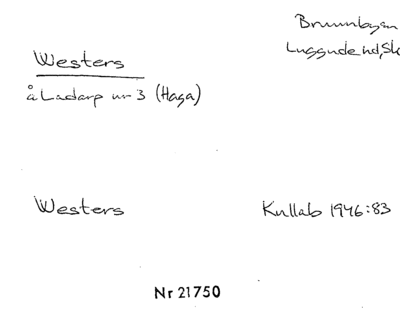 Brunnby sn
Luggude hd, Sk
Westers
å Ladarp nr 3 (Haga)
Westers
Kullab 1946:83
Nr 21750